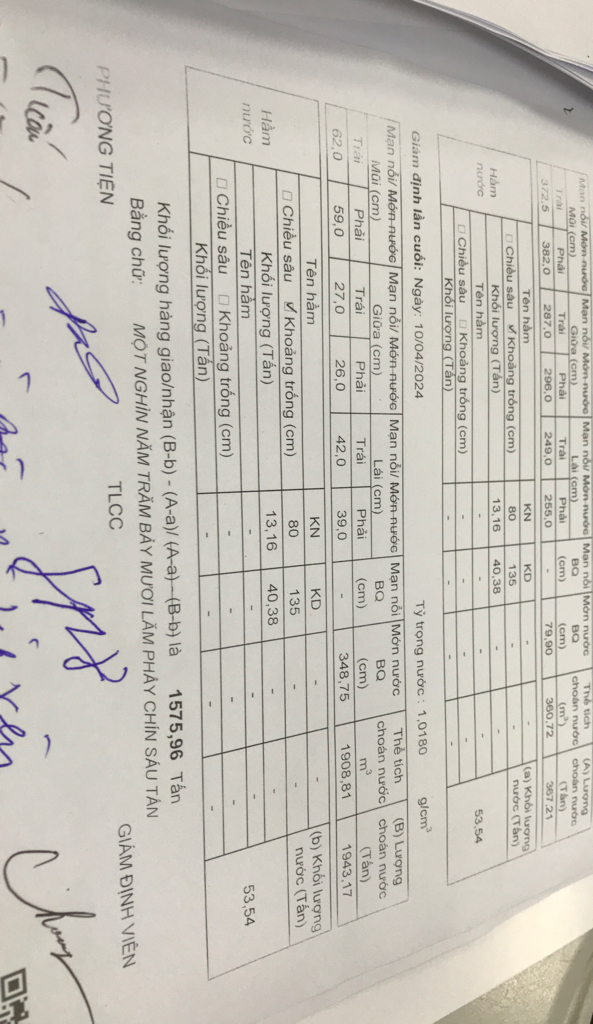 Mạn nổi/ Mớn nước Mũi (cm) Mạn nổi/ Mớn nước Giữa (cm) Mạn nổi/ Mớn nước Lái (cm) Mạn nổi BQ (cm) Mớn nước BQ (cm) Thể tích choán nước (m³) (A) Lượng choán nước (Tấn)
Trái Phải Trái Phải Trái Phải
372,5 382,0 287,0 296,0 249,0 255,0 - 79,90 360,72 367,21
Hầm nước Tên hầm KN KD - - (a) Khối lượng nước (Tấn)
☐ Chiều sâu ☑ Khoảng trống (cm) 80 135 - -
Khối lượng (Tấn) 13,16 40,38 - - 53,54
Tên hầm - - - -
☐ Chiều sâu ☐ Khoảng trống (cm) - - - -
Khối lượng (Tấn) - - - -
Giám định lần cuối: Ngày: 10/04/2024 Tỷ trọng nước : 1,0180 g/cm³
Mạn nổi/ Mớn nước Mũi (cm) Mạn nổi/ Mớn nước Giữa (cm) Mạn nổi/ Mớn nước Lái (cm) Mạn nổi BQ (cm) Mớn nước BQ (cm) Thể tích choán nước m³ (B) Lượng choán nước (Tấn)
Trái Phải Trái Phải Trái Phải
62,0 59,0 27,0 26,0 42,0 39,0 - 348,75 1908,81 1943,17
Hầm nước Tên hầm KN KD - - (b) Khối lượng nước (Tấn)
☐ Chiều sâu ☑ Khoảng trống (cm) 80 135 - -
Khối lượng (Tấn) 13,16 40,38 - - 53,54
Tên hầm - - - -
☐ Chiều sâu ☐ Khoảng trống (cm) - - - -
Khối lượng (Tấn) - - - -
Khối lượng hàng giao/nhận (B-b) - (A-a)/ (A-a) - (B-b) là 1575,96 Tấn
Bằng chữ: MỘT NGHÌN NĂM TRĂM BẢY MƯƠI LĂM PHẨY CHÍN SÁU TẤN
PHƯƠNG TIỆN TLCC GIÁM ĐỊNH VIÊN